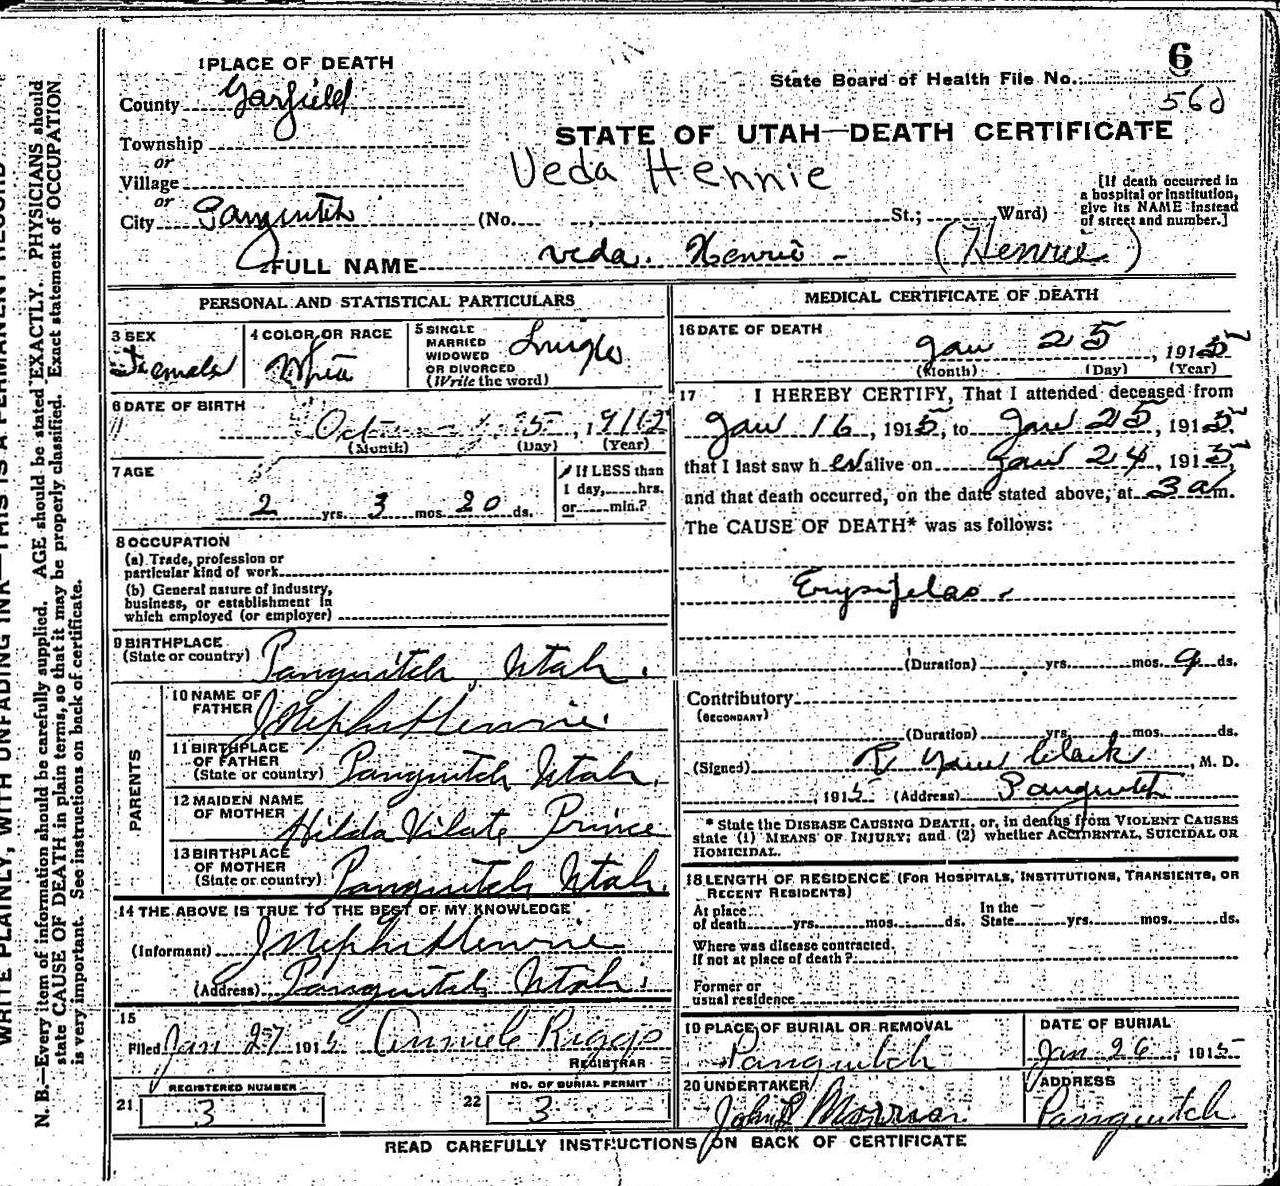 6
State Board of Health File No.
56d
1 PLACE OF DEATH
County Garfield
Township
or
Village
or
City Panguitch (No. , St.; Ward)
STATE OF UTAH—DEATH CERTIFICATE
Veda Hennie
[If death occurred in a hospital or institution, give its NAME instead of street and number.]
2 FULL NAME Veda. Henrie - (Henrie)
PERSONAL AND STATISTICAL PARTICULARS
3 SEX
Female
4 COLOR OR RACE
White
5 SINGLE MARRIED WIDOWED OR DIVORCED (Write the word)
Single
6 DATE OF BIRTH
Oct 5, 1912
(Month) (Day) (Year)
7 AGE
2 yrs. 3 mos. 20 ds.
If LESS than 1 day, hrs. or min.?
8 OCCUPATION
(a) Trade, profession or particular kind of work
(b) General nature of industry, business, or establishment in which employed (or employer)
9 BIRTHPLACE (State or country) Panguitch, Utah.
PARENTS
10 NAME OF FATHER J Nephi Henrie.
11 BIRTHPLACE OF FATHER (State or country) Panguitch Utah.
12 MAIDEN NAME OF MOTHER Hilda Vilate Prince
13 BIRTHPLACE OF MOTHER (State or country) Panguitch Utah.
14 THE ABOVE IS TRUE TO THE BEST OF MY KNOWLEDGE
(Informant) J Nephi Henrie
(Address) Panguitch Utah.
15
Filed Jan 27 1915 Riggs
REGISTRAR
REGISTERED NUMBER
21 3
NO. OF BURIAL PERMIT
22 3
MEDICAL CERTIFICATE OF DEATH
16 DATE OF DEATH
Jan 25, 1915
(Month) (Day) (Year)
17 I HEREBY CERTIFY, That I attended deceased from
Jan 16, 1915, to Jan 25, 1915,
that I last saw her alive on Jan 24, 1915,
and that death occurred, on the date stated above, at 3 am.
The CAUSE OF DEATH* was as follows:
Erysipelas.
(Duration) yrs. mos. 9 ds.
Contributory
(SECONDARY)
(Duration) yrs. mos. ds.
(Signed) R Clark, M. D.
, 1915 (Address) Panguitch
* State the DISEASE CAUSING DEATH, or, in deaths from VIOLENT CAUSES
state (1) MEANS OF INJURY; and (2) whether ACCIDENTAL, SUICIDAL OR
HOMICIDAL.
18 LENGTH OF RESIDENCE (FOR HOSPITALS, INSTITUTIONS, TRANSIENTS, OR
RECENT RESIDENTS)
At place of death yrs. mos. ds. In the State yrs. mos. ds.
Where was disease contracted,
If not at place of death?
Former or
usual residence
19 PLACE OF BURIAL OR REMOVAL
Panguitch
DATE OF BURIAL
Jan 26, 1915
20 UNDERTAKER
John
ADDRESS
Panguitch
READ CAREFULLY INSTRUCTIONS ON BACK OF CERTIFICATE
WRITE PLAINLY, WITH UNFADING INK—THIS IS A PERMANENT RECORD
N. B.—Every item of information should be carefully supplied. AGE should be stated EXACTLY. PHYSICIANS should
state CAUSE OF DEATH in plain terms, so that it may be properly classified. Exact statement of OCCUPATION
is very important. See instructions on back of certificate.